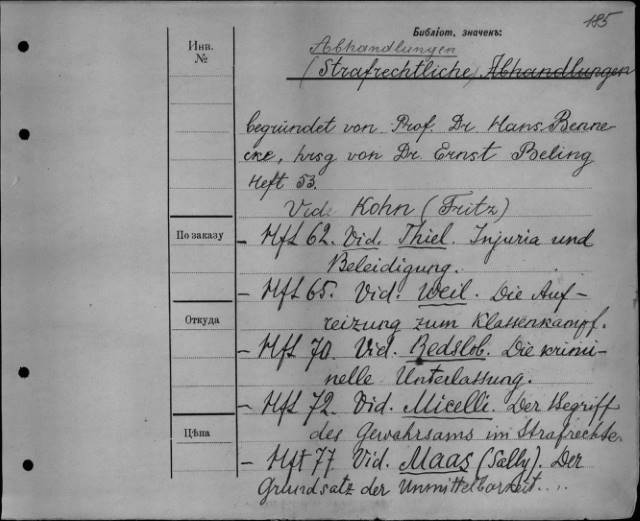 185
Библіот. значекъ:
Инв.
№
Abhandlungen
(Strafrechtliche) Abhandlungen
begründet von Prof. Dr. Hans Benne
cke, hrsg von Dr Ernst Beling
Heft 53.
Vid. Kohn (Fritz)
По заказу
- Hft 62. Vid. Thiel. Injuria und
Beleidigung.
- Hft 65. Vid. Weil. Die Auf-
Откуда
reizung zum Klassenkampf.
- Hft 70. Vid. Redslob. Die krimi-
nelle Unterlassung.
- Hft 72. Vid. Micelli. Der Begriff
Цѣна
des Gewahrsams im Strafrechte.
- Hft 77 Vid. Maas (Sally). Der
Grundsatz der Unmittelbarkeit...